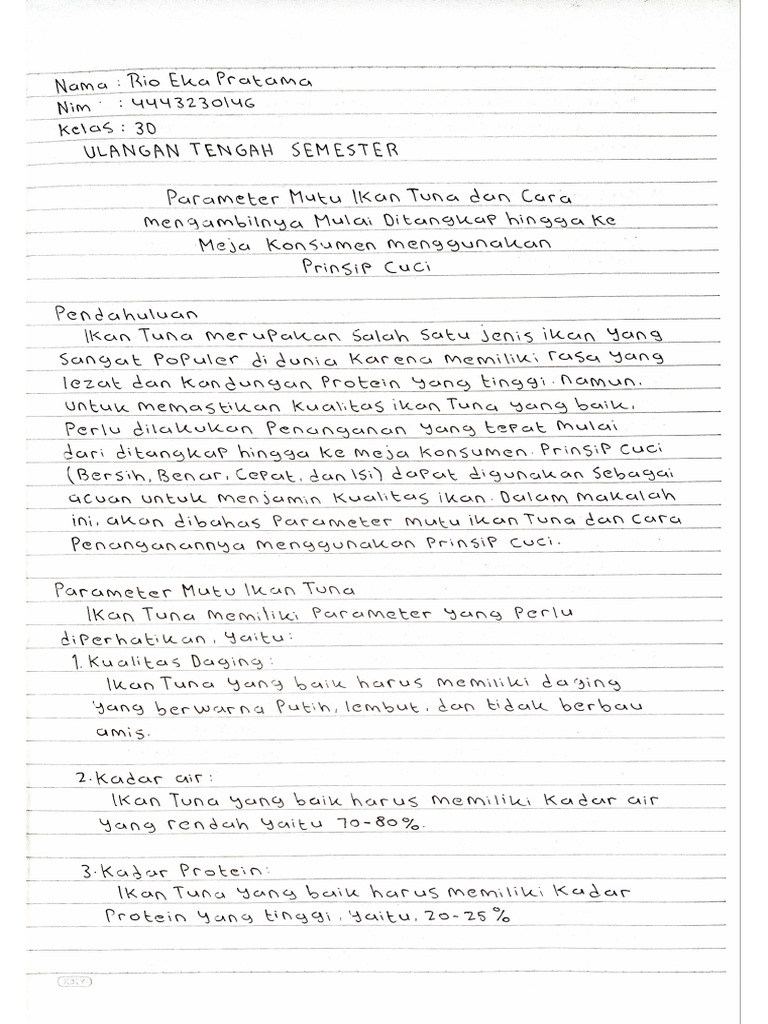 Nama : Rio Eka Pratama
Nim : 4443230146
Kelas : 3D
ULANGAN TENGAH SEMESTER
Parameter Mutu Ikan Tuna dan Cara
mengambilnya Mulai Ditangkap hingga Ke
Meja Konsumen menggunakan
Prinsip Cuci
Pendahuluan
Ikan Tuna merupakan Salah Satu jenis ikan yang
Sangat Populer di dunia Karena memiliki rasa yang
lezat dan Kandungan Protein yang tinggi. Namun,
untuk memastikan Kualitas ikan Tuna yang baik,
Perlu dilakukan Penanganan yang tepat mulai
dari ditangkap hingga ke meja Konsumen. Prinsip Cuci
(Bersih, Benar, Cepat, dan Isi) dapat digunakan Sebagai
acuan untuk menjamin Kualitas ikan. Dalam makalah
ini, akan dibahas Parameter mutu ikan Tuna dan Cara
Penanganannya menggunakan Prinsip Cuci.
Parameter Mutu Ikan Tuna
Ikan Tuna memiliki Parameter yang Perlu
diperhatikan, yaitu:
1. Kualitas Daging:
Ikan Tuna yang baik harus memiliki daging
yang berwarna Putih, lembut, dan tidak berbau
amis.
2. Kadar air:
Ikan Tuna yang baik harus memiliki Kadar air
yang rendah yaitu 70-80%.
3. Kadar Protein:
Ikan Tuna yang baik harus memiliki Kadar
Protein yang tinggi, yaitu, 20-25%